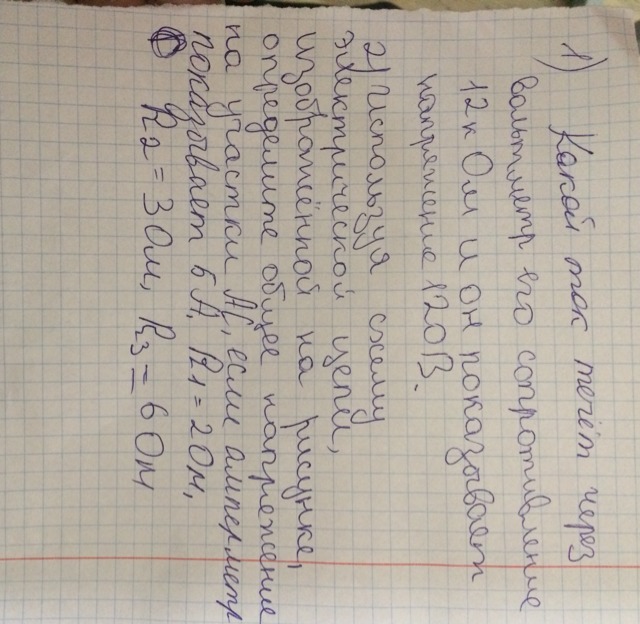 1) Какой ток течёт через
вольтметр его сопротивление
12 кОм и он показывает
напряжение 120В.
2) Используя схему
электрической цепи,
изображённой на рисунке,
определите общее напряжение
на участки АС, если амперметр
показывает 5 А, R1 = 2 Ом,
R2 = 3 Ом, R3 = 6 Ом,